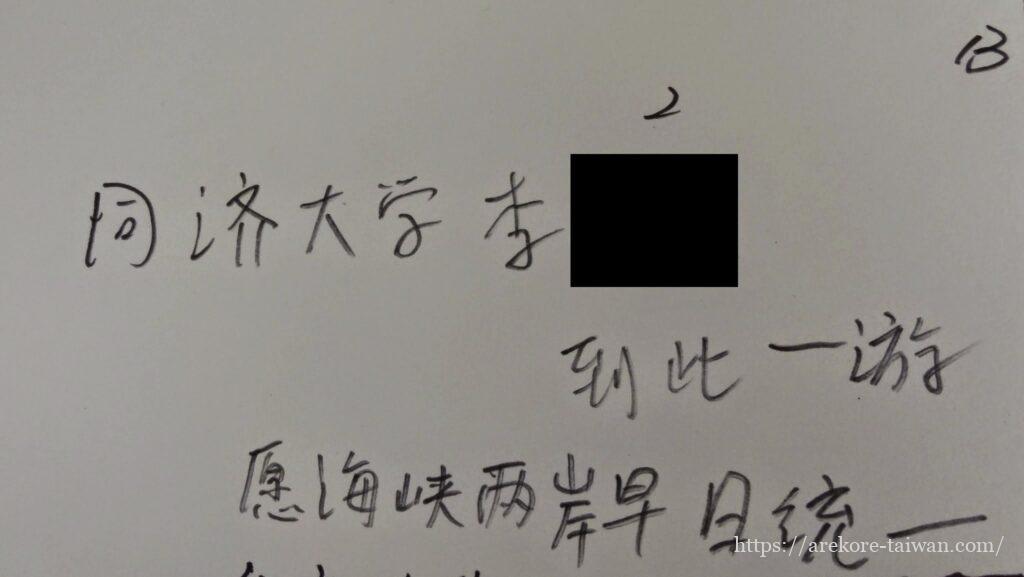 13
2
同济大学李
到此一游
愿海峡两岸早日统一
https://arekore-taiwan.com/